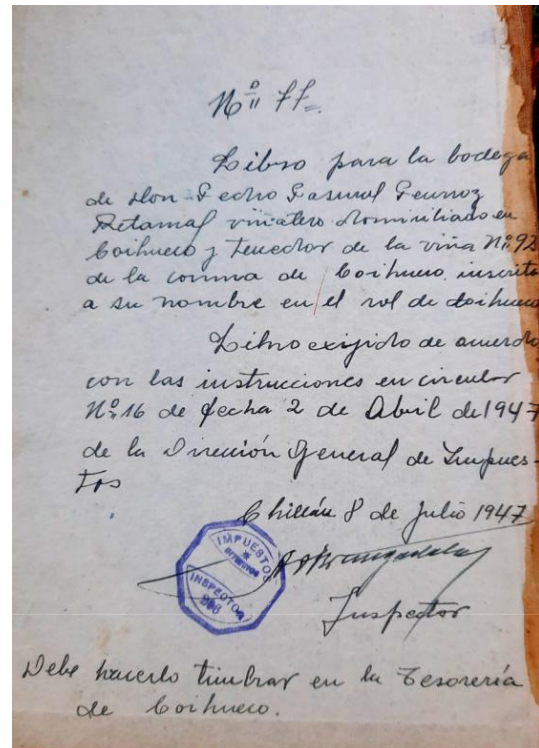 Nº 77.
Libro para la bodega
de don Pedro Pascual
Retamal viñatero domiciliado en
Coihueco y tenedor de la viña Nº 92
de la comuna de Coihueco inscrita
a su nombre en el rol de Coihueco
Libro exijido de acuerdo
con las instrucciones en circular
Nº 16 de fecha 2 de Abril de 1947
de la Dirección General de Impues-
tos
Chillán 8 de Julio 1947
IMPUESTOS
INTERNOS
INSPECTOR
Inspector
Debe hacerlo timbrar en la Tesorería
de Coihueco.